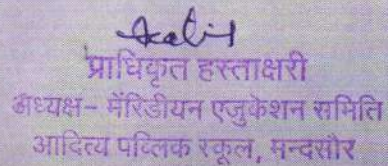 प्राधिकृत हस्ताक्षरी
अध्यक्ष- मेंरिडीयन एजुकेशन समिति
आदित्य पब्लिक स्कूल, मन्दसौर